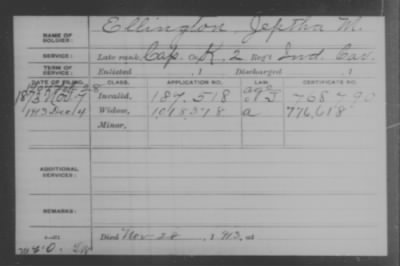 NAME OF SOLDIER: Ellington, Jeptha M.
SERVICE: Late rank, Cap. Co. K, 2 Reg't Ind. Cav.
TERM OF SERVICE: Enlisted , 1 Discharged , 1
DATE OF FILING. CLASS. APPLICATION NO. LAW. CERTIFICATE NO.
1873 Nov 7 Invalid, 187,518 768790
1913 Dec 4 Widow, 1018,378 a 776,618
Minor,
ADDITIONAL SERVICES:
REMARKS:
Died Nov 28, 1913, at